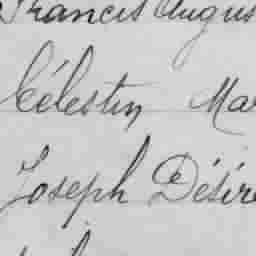 Francis Augus
Célestin Mar
Joseph Désiré